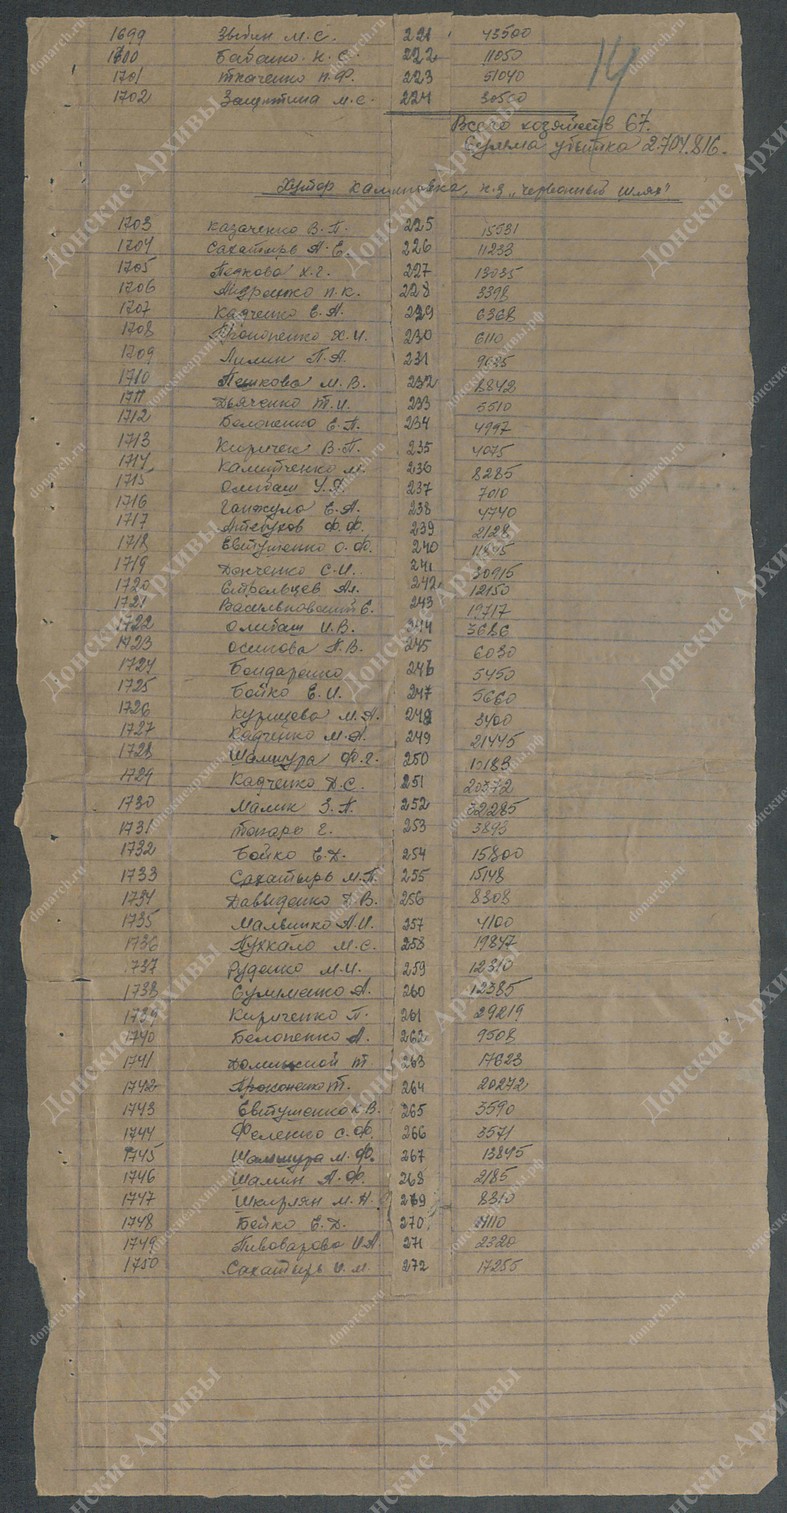 1699 Звбин М.С. 221 43500
1700 Бабанко Н.С. 222 11050
1701 Ткаченко П.Ф. 223 51040
1702 Защитина М.С. 224 30500
14
Всего хозяйств 67.
Сумма убытка 2.704.816.
Хутор Калиновка, к-з "Червонный шлях"
1703 Казаченко В.П. 225 15531
1704 Сахатырь А.Е. 226 11233
1705 Пешкова Х.Г. 227 13035
1706 Андренко П.К. 228 3398
1707 Кадченко Е.А. 229 6368
1708 Прокопенко Х.И. 230 6110
1709 Лилин П.А. 231
1710 Пешкова М.В. 232 8848
1711 Дьяченко Т.И. 233 5510
1712 Белопенко Е.П. 234 4997
1713 Киричек В.П. 235 4075
1714 Калитченко М. 236 8285
1715 Олибаш У.Д. 237 7010
1716 Ганжула Е.А. 238 4740
1717 Ф.Ф. 239 2128
1718 Евтушенко О.Ф. 240
1719 Донченко С.И. 241 30915
1720 Стрельцев Ал. 242 12150
1721 Е. 243 19717
1722 Олибаш И.В. 244 3686
1723 Осипова А.В. 245 6030
1724 Бондаренко 246 5450
1725 Бойко Е.И. 247 5660
1726 Курищева М.А. 248 3400
1727 Кадченко М.А. 249 21445
1728 Шамшура Ф.Г. 250 10183
1729 Кадченко Д.С. 251 20372
1730 Малик З.А. 252 32285
1731 Токарь Е. 253 3893
1732 Бойко Е.Д. 254 15800
1733 Сахатырь М.П. 255 15148
1734 Давыденко Д.В. 256 8308
1735 А.И. 257 4100
1736 Пухкало М.С. 258 19847
1737 Руденко М.И. 259 12310
1738 Сумменко А. 260 12385
1739 Кириченко П. 261 29219
1740 Белопенко А. 262 9508
1741 Т 263 17623
1742 Прокопенко Т. 264 20272
1743 Евтушенко К.В. 265 3590
1744 Феленко С.Ф. 266 3571
1745 Шамшура М.Ф. 267 13845
1746 Шалин А.Ф. 268 2185
1747 Шкирлян М.Н. 269 8310
1748 Бойко Е.Д. 270 4110
1749 Пивоварова И.А. 271 2320
1750 Сахатырь И.М. 272 17255
Донские Архивы
donarch.ru